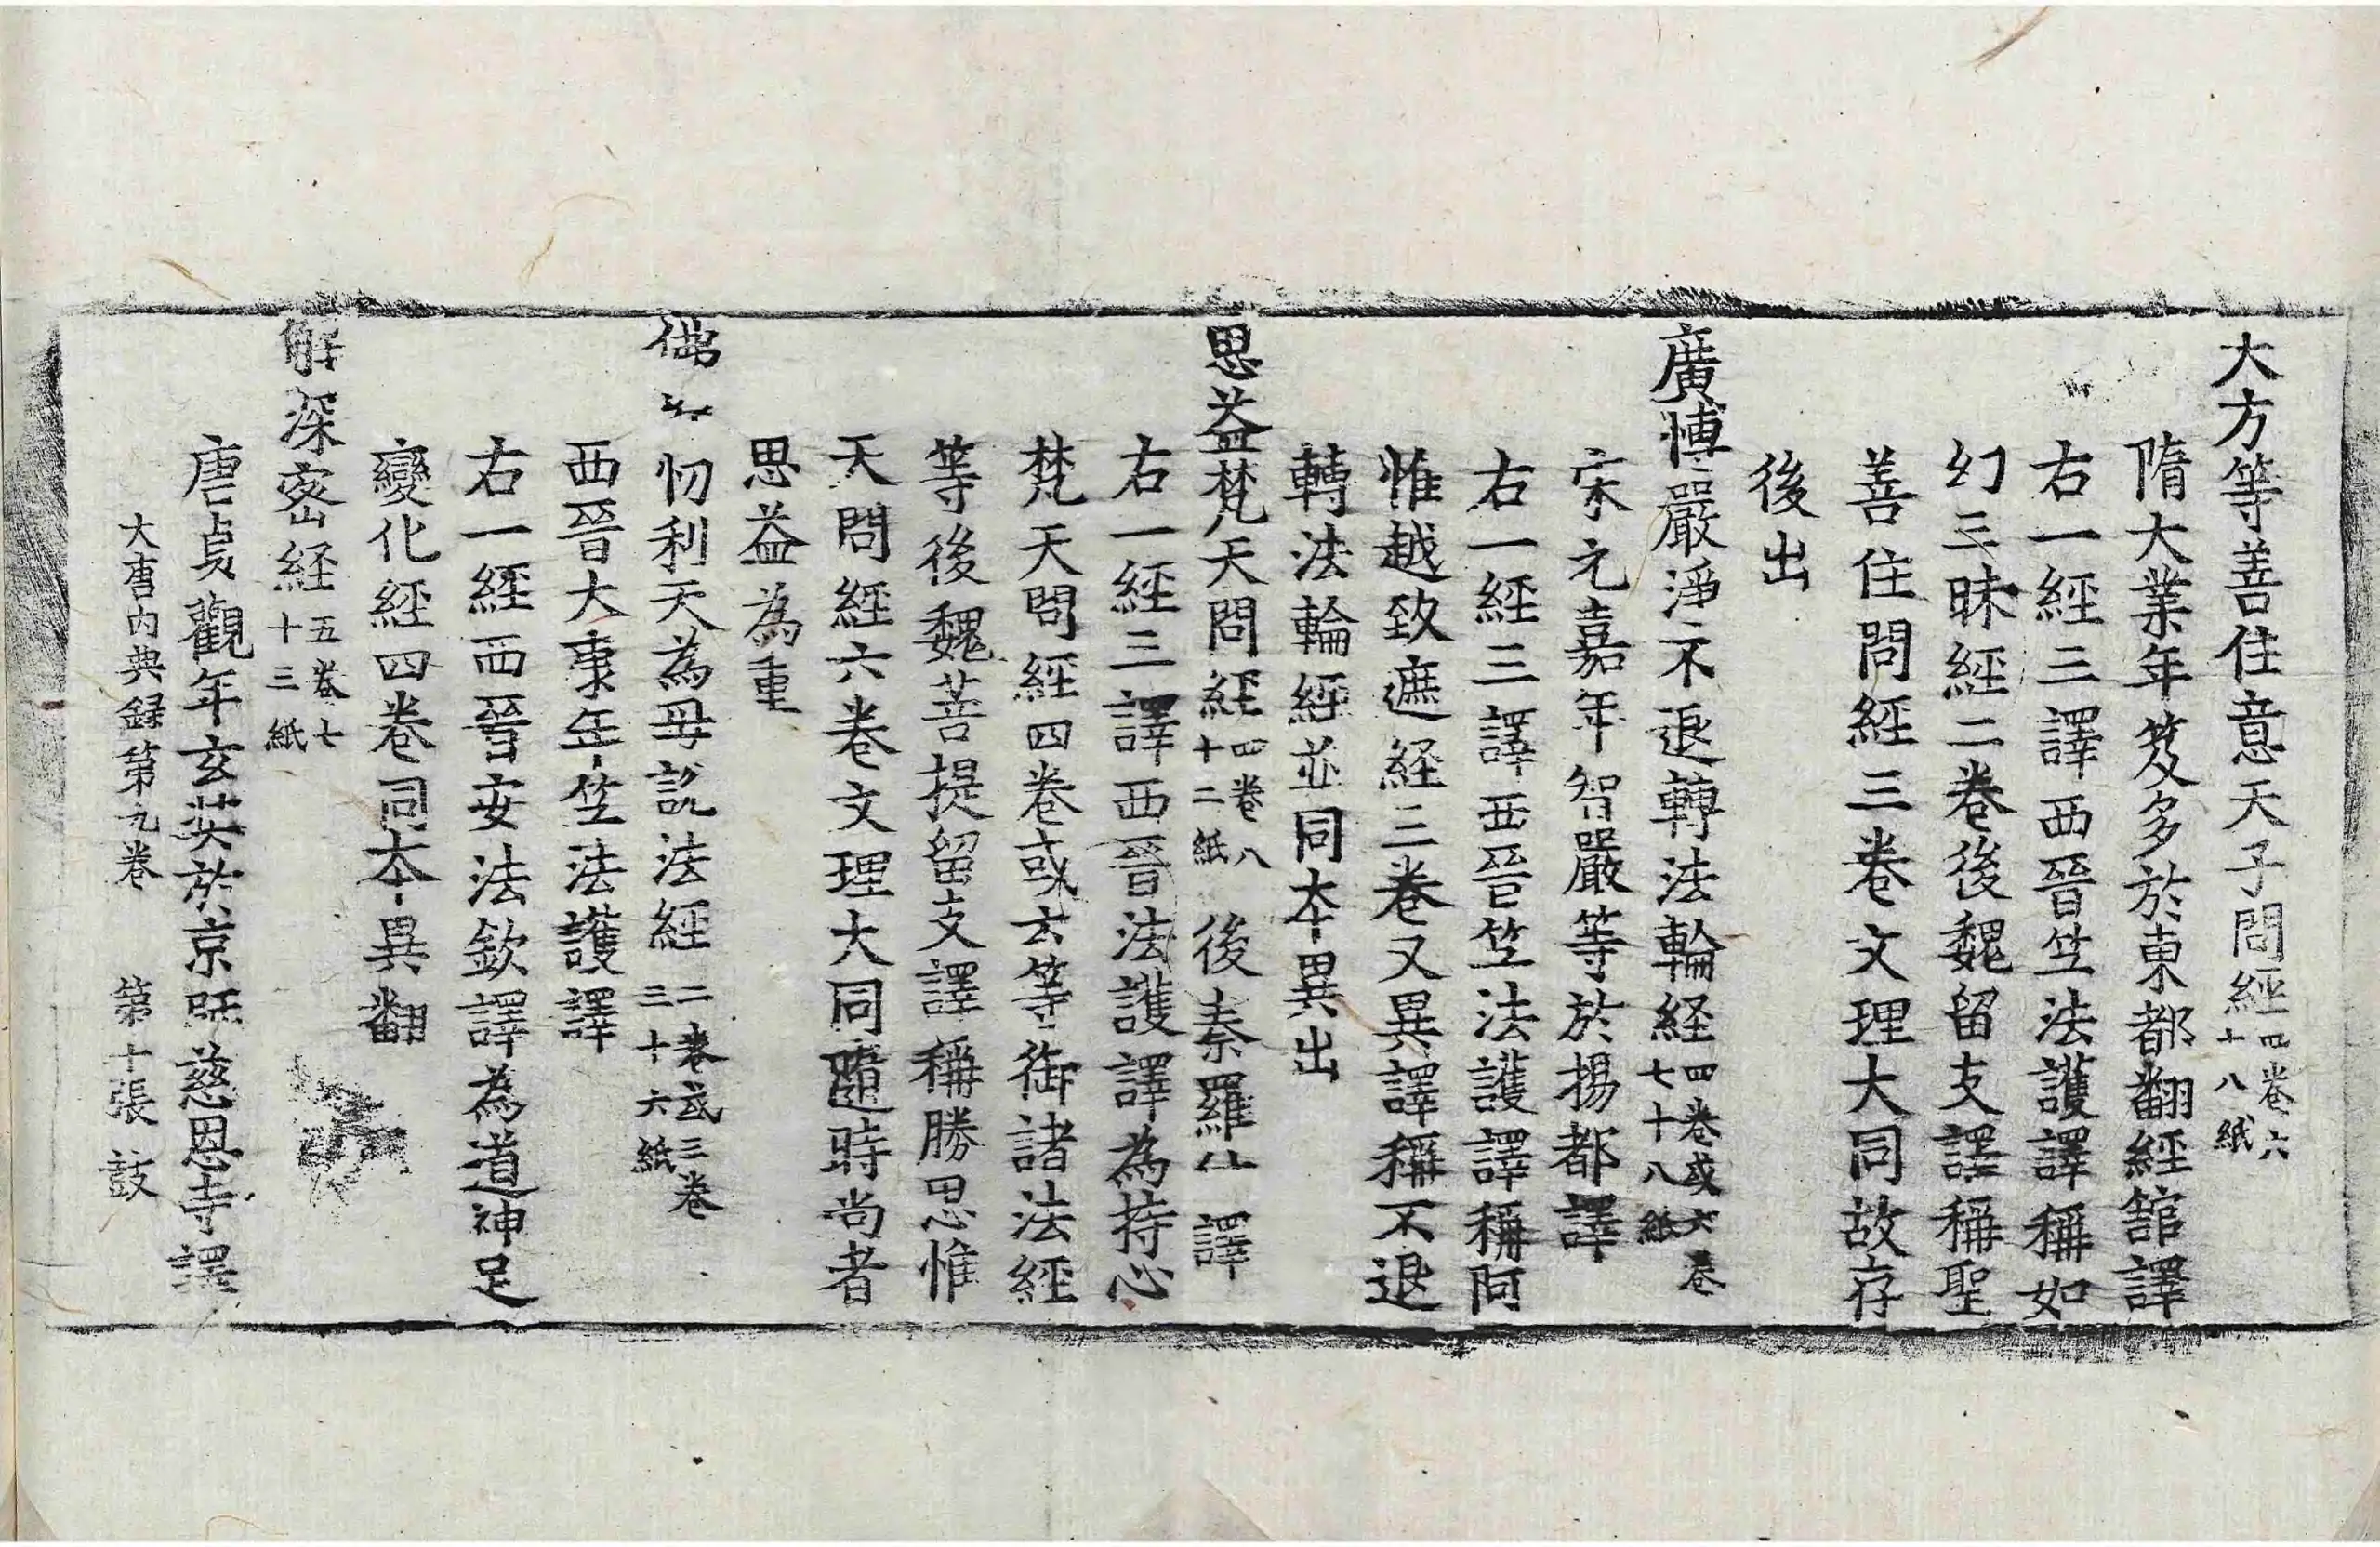 大方等善住意天子問經四卷六十八紙
隋大業年笈多於東都翻經館譯
右一經三譯西晉竺法護譯稱如
幻三昧經二卷後魏留支譯稱聖
善住問經三卷文理大同故存
後出
廣博嚴淨不退轉法輪経四卷或六卷七十八紙
宋元嘉年智嚴等於揚都譯
右一經三譯西晉竺法護譯稱阿
惟越致遮経三卷又異譯稱不退
轉法輪經並同本異出
思益梵天問經四卷八十二紙 後秦羅什譯
右一經三譯西晉法護譯為持心
梵天問經四卷或云等御諸法經
等後魏菩提留支譯稱勝思惟
天問經六卷文理大同隨時尚者
思益為重
佛 忉利天為母說法經二卷或三卷三十六紙
西晉大康年竺法護譯
右一經西晉安法欽譯為道神足
變化經四卷同本異翻
解深密経五卷七十三紙
唐貞觀年玄奘於京師慈恩寺譯
大唐内典録第九卷 第十張 鼓